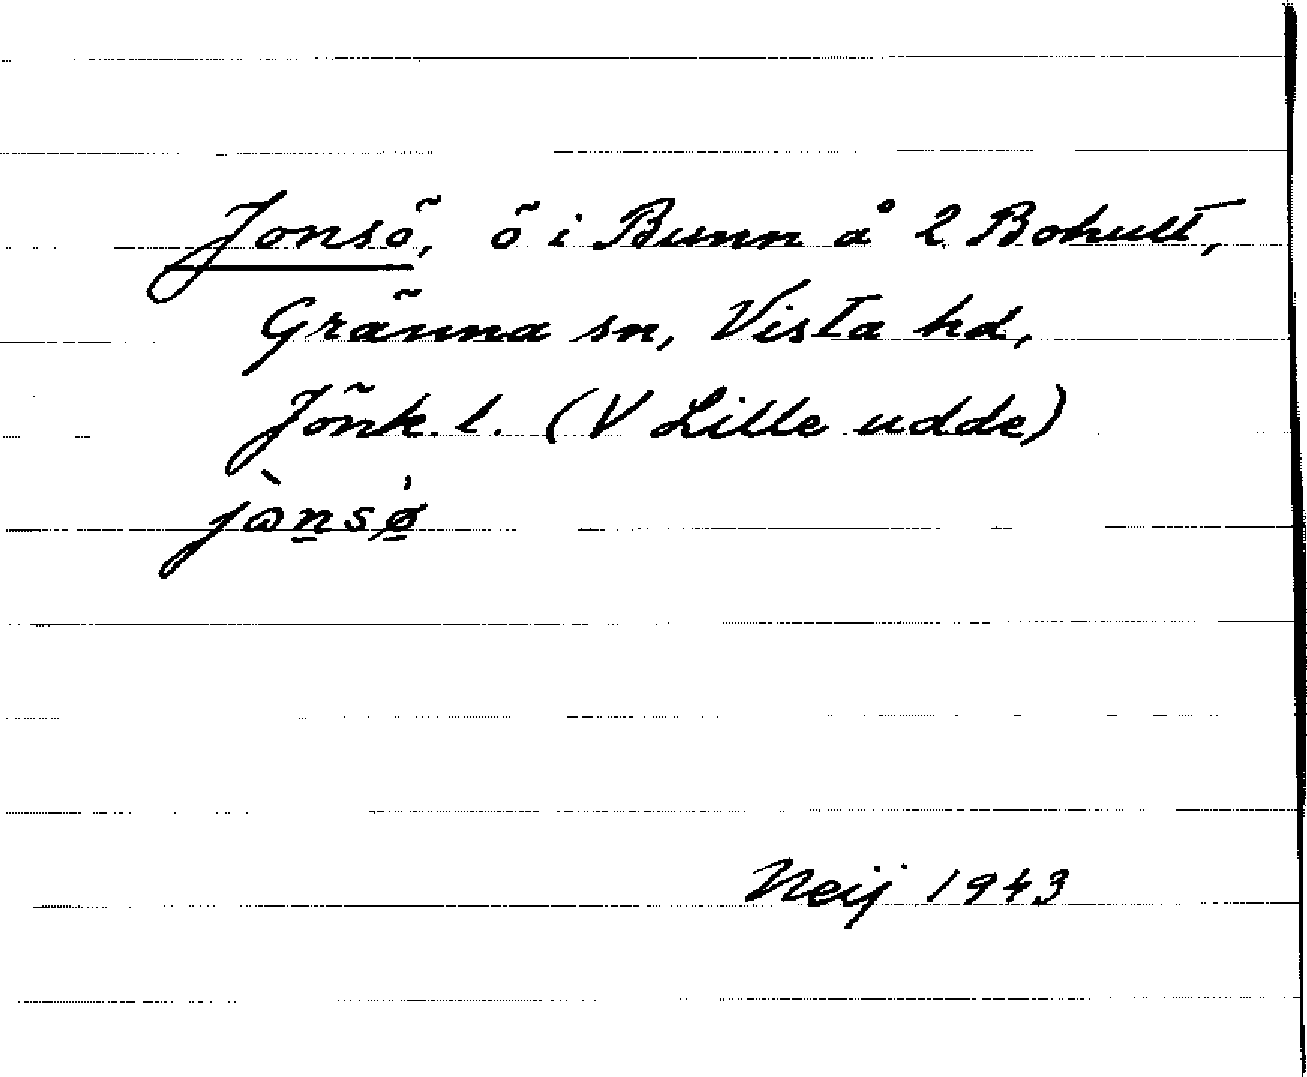 Jonsö, ö i Bunn å 2 Bohult,
Gränna sn, Vista hd,
Jönk. l. (V Lille udde)
Neij 1943